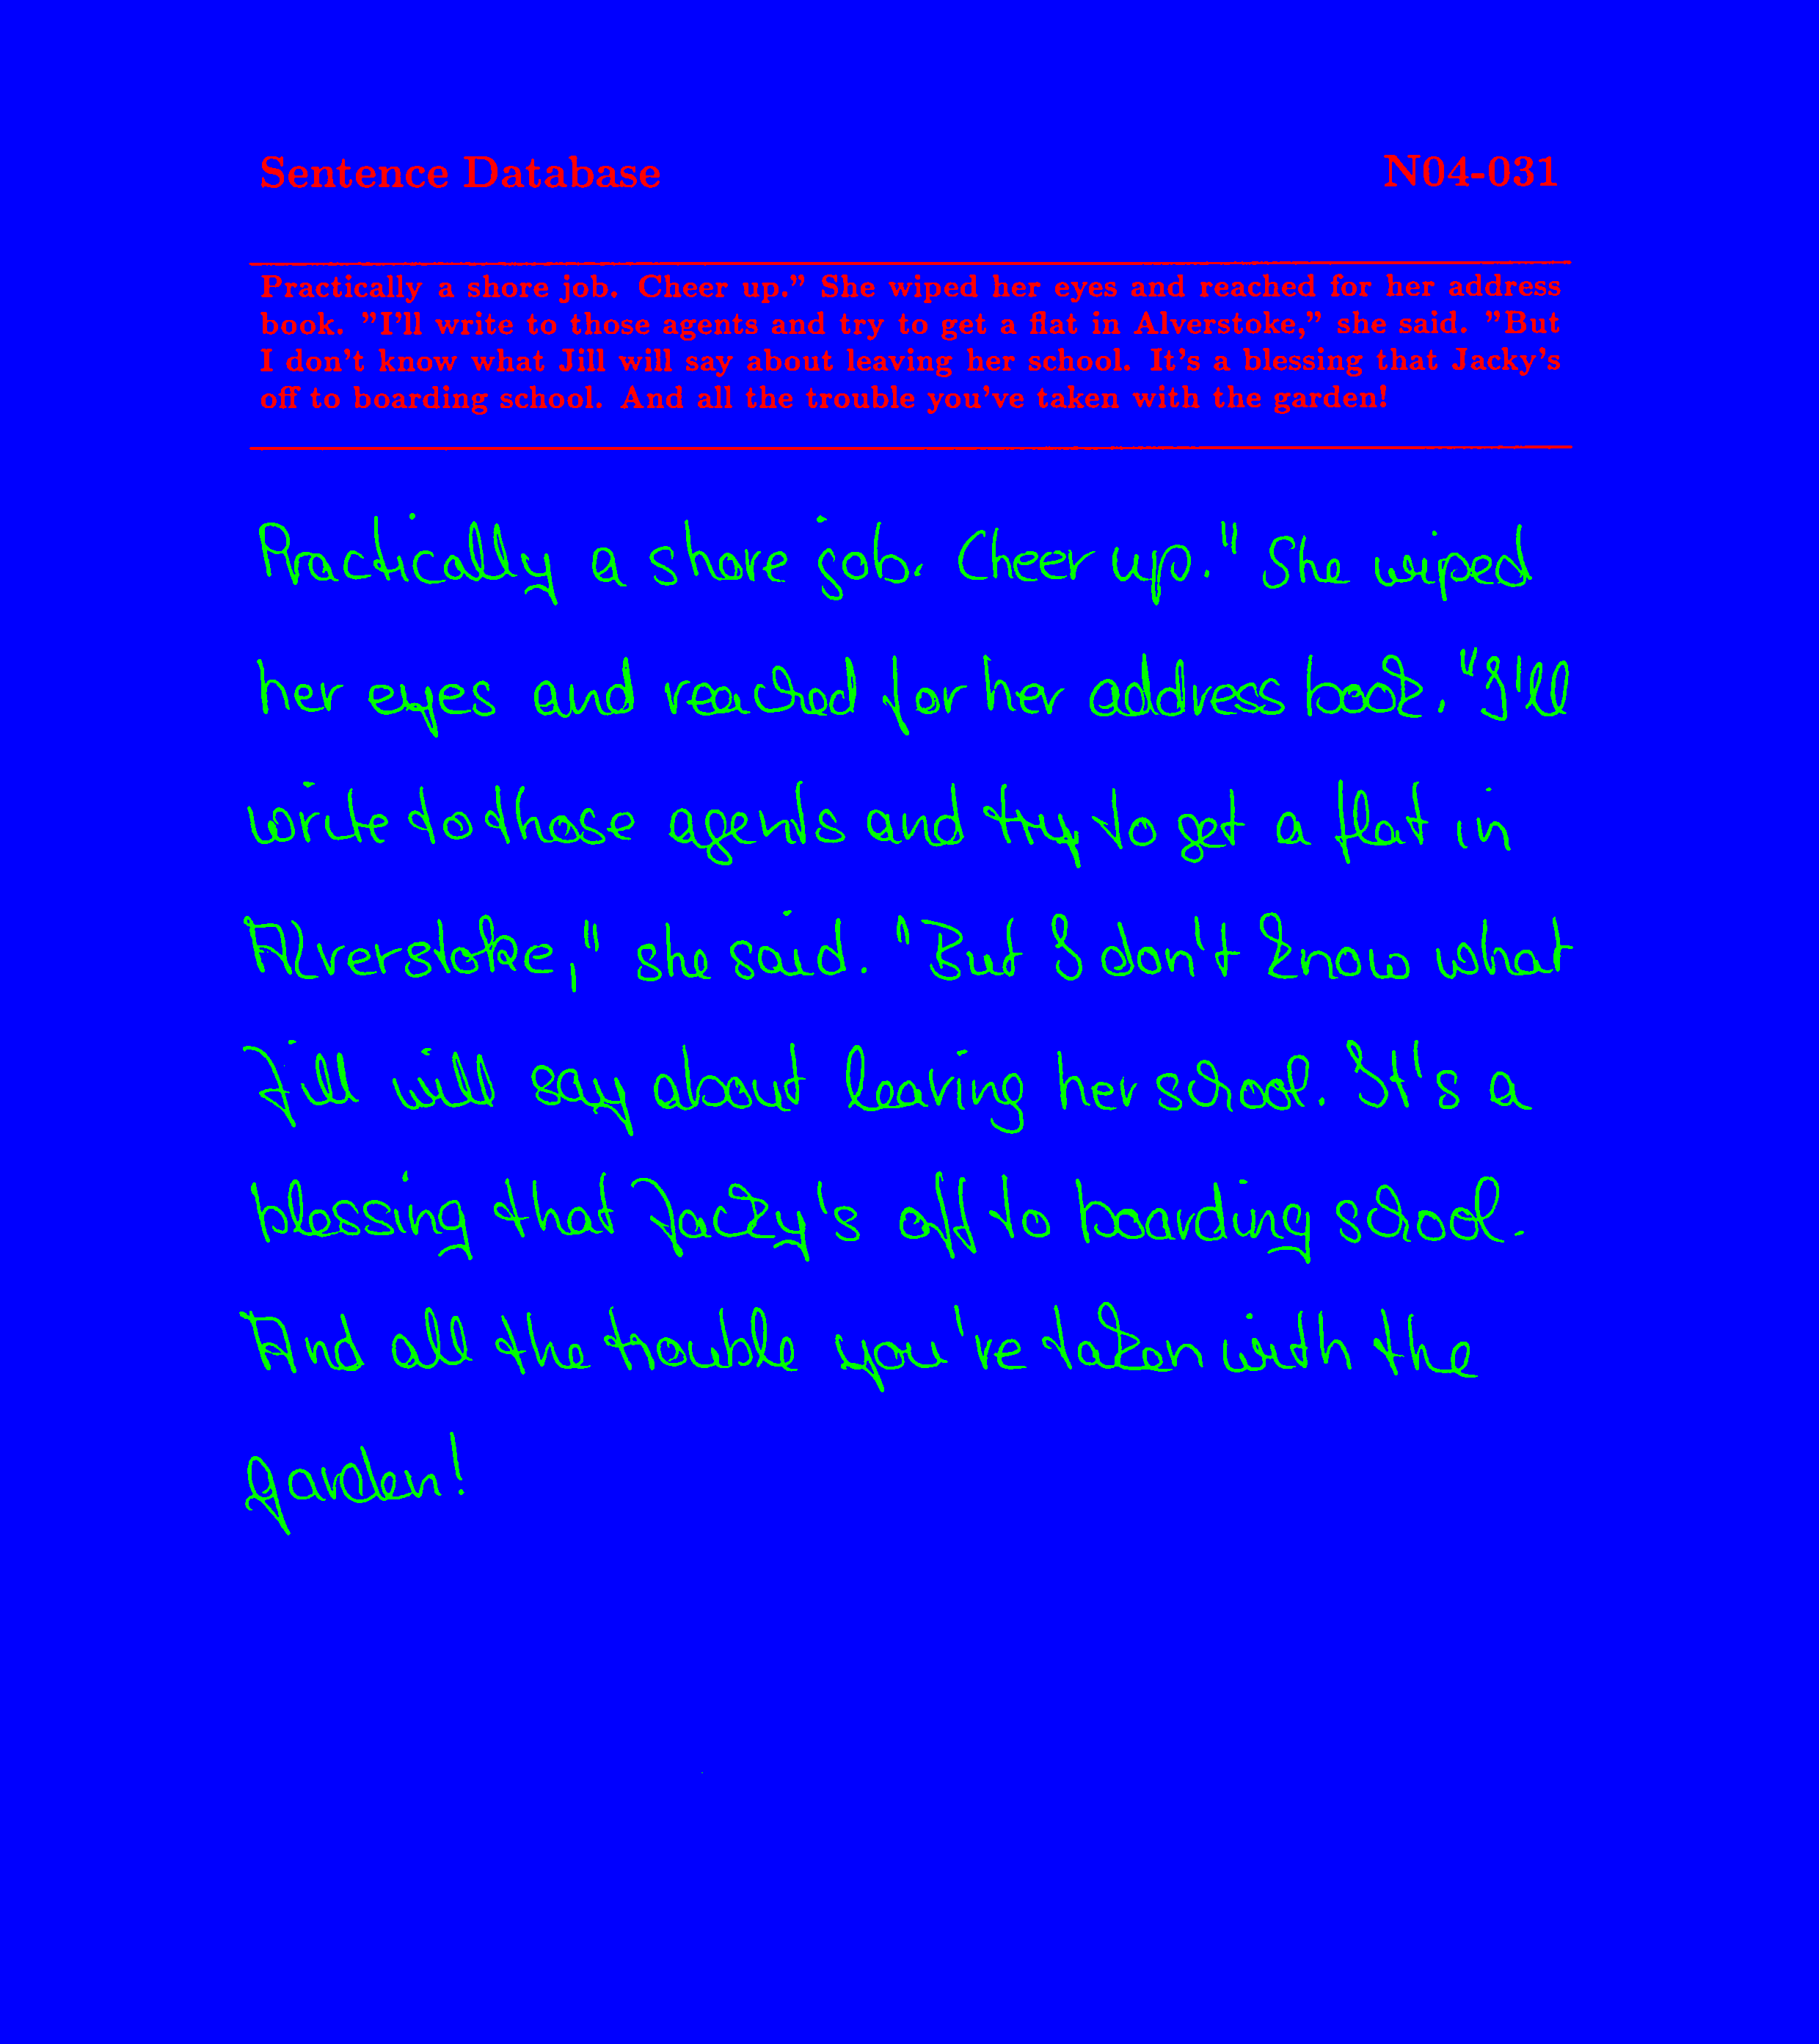 Sentence Database N04-031
Practically a shore job. Cheer up.” She wiped her eyes and reached for her address
book. ”I’ll write to those agents and try to get a flat in Alverstoke,” she said. ”But
I don’t know what Jill will say about leaving her school. It’s a blessing that Jacky’s
off to boarding school. And all the trouble you’ve taken with the garden!
Practically a shore job. Cheer up." She wiped
her eyes and reached for her address book. "I'll
write to those agents and try to get a flat in
Alverstoke," she said. "But I don't know what
Jill will say about leaving her school. It's a
blessing that Jacky's off to boarding school.
And all the trouble you've taken with the
garden!